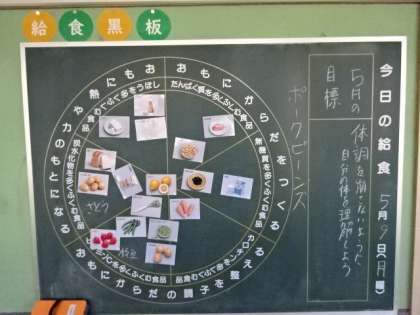 給食黒板
今日の給食 5月9日(月曜)
5月の目標
体調を崩さないように
自分の体を理解しよう
ポークビーンズ
おもにからだをつくる
たんぱく質を多くふくむ食品
無機質を多くふくむ食品
おもにからだの調子を整える
カロテンを多くふくむ食品
ビタミンCを多くふくむ食品
おもに熱や力のもとになる
炭水化物を多くふくむ食品
しぼうを多くふくむ食品
さとう
枝豆